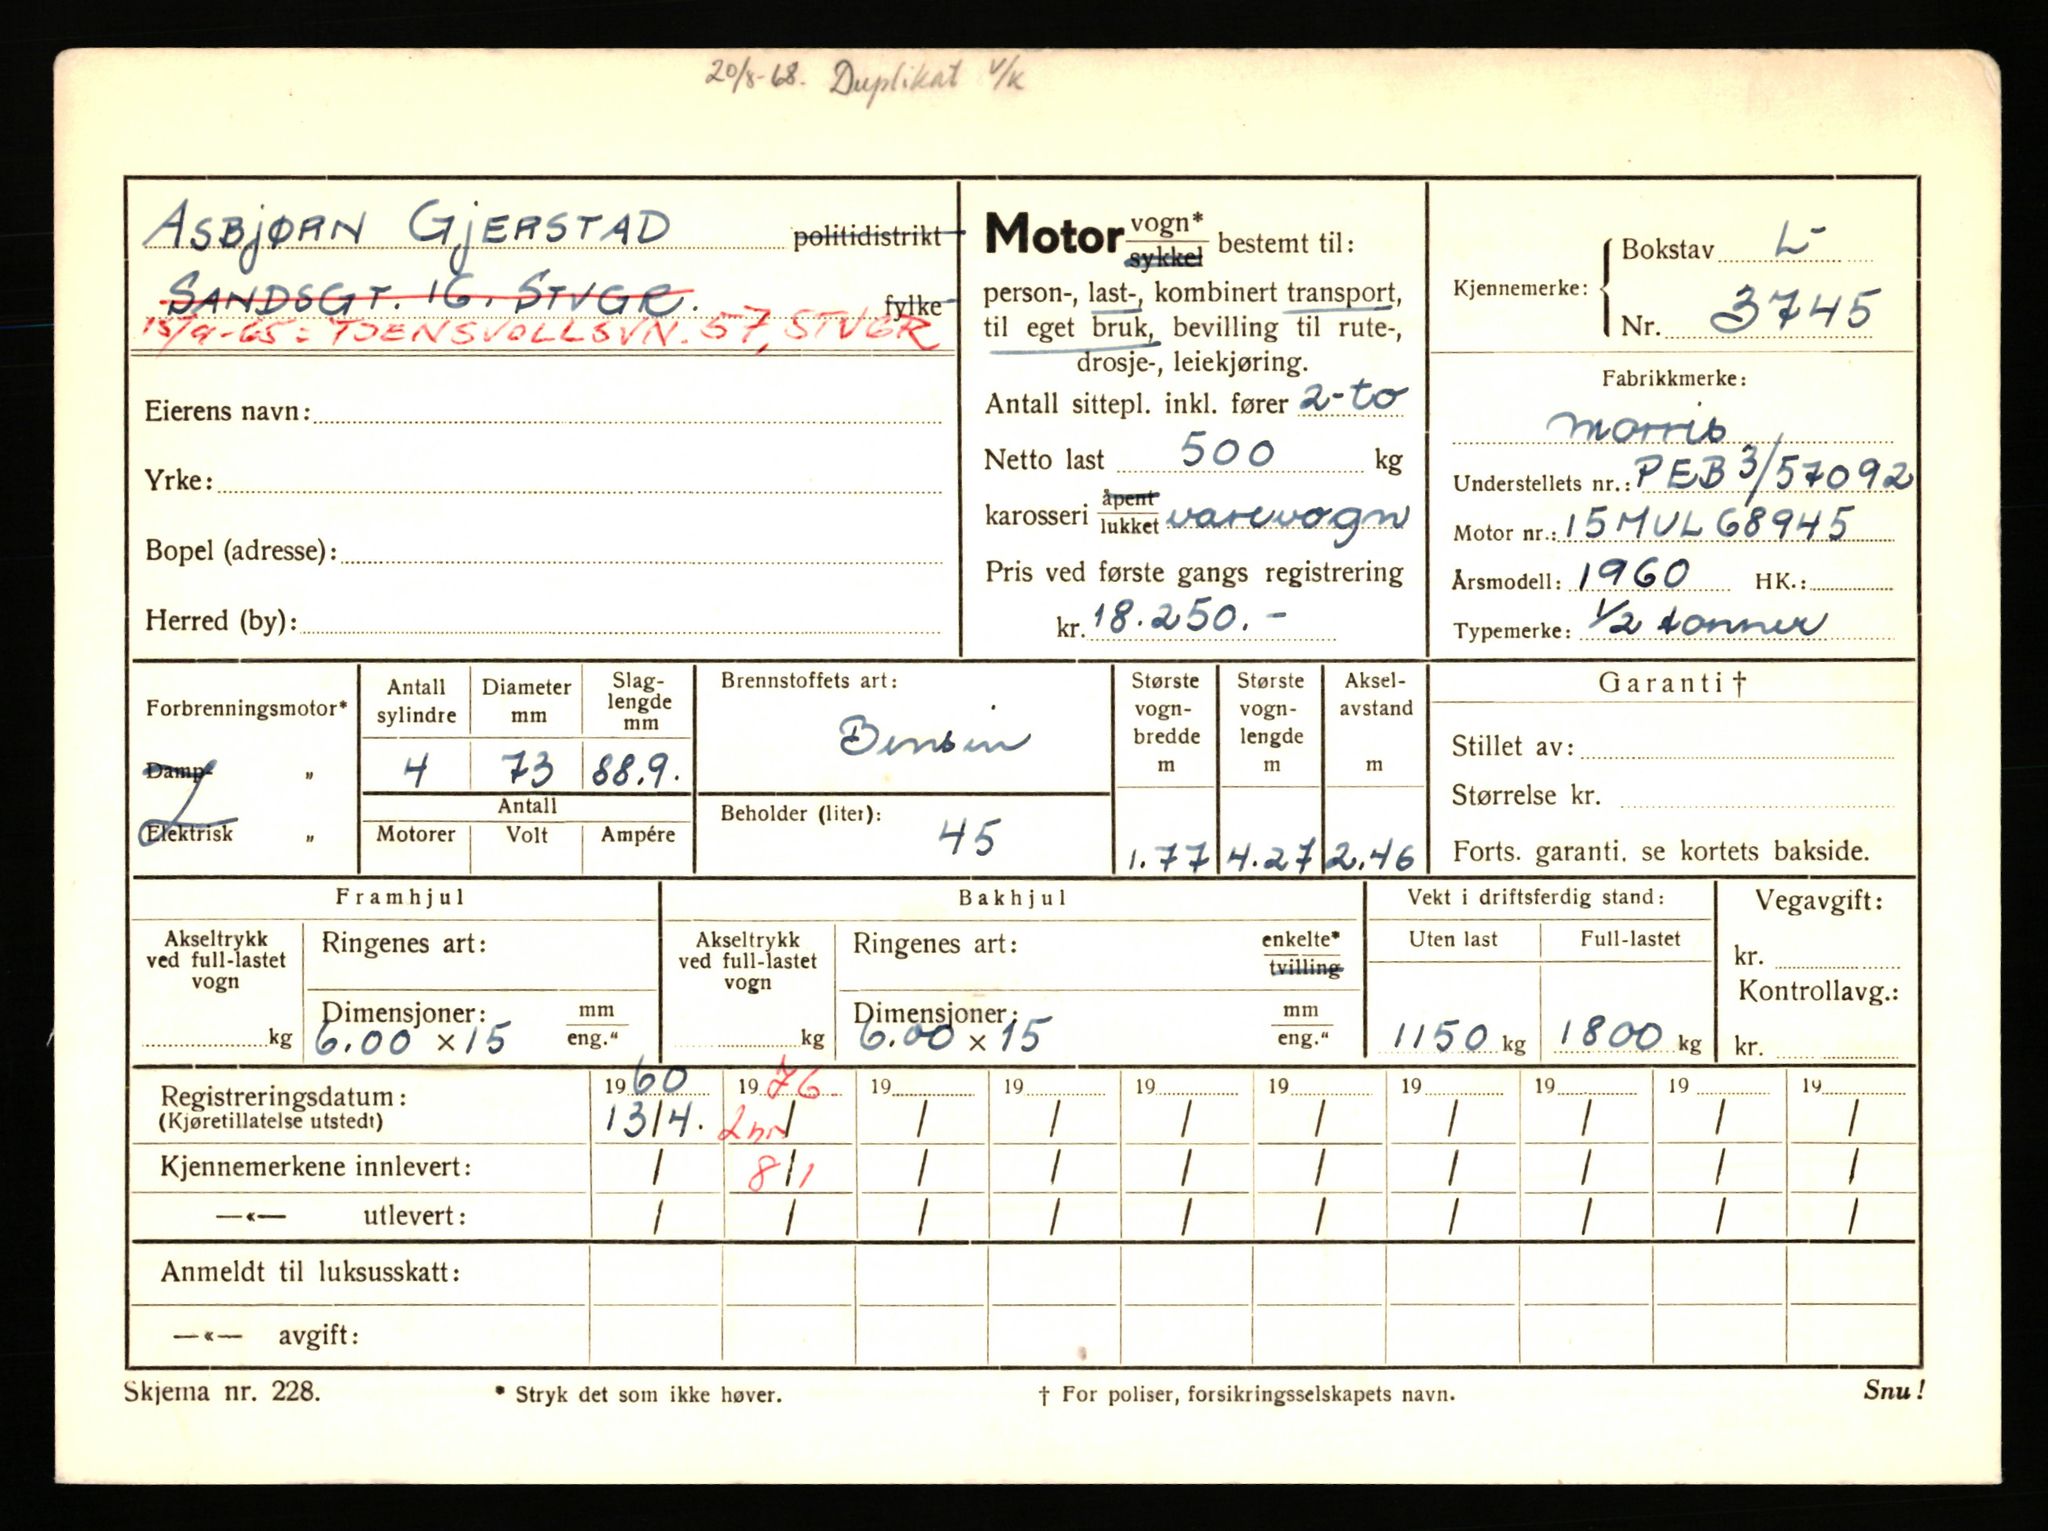 20/8-68. Duplikat V/K
ASBJØRN GJERSTAD politidistrikt
SANDSGT. 16. STVGR. fylke
15/9-65: TJENSVOLLSVN. 57, STVGR
Eierens navn:
Yrke:
Bopel (adresse):
Herred (by):
Motor vogn* sykkel bestemt til:
person-, last-, kombinert transport,
til eget bruk, bevilling til rute-,
drosje-, leiekjøring.
Antall sittepl. inkl. fører 2-to
Netto last 500 kg
karosseri åpent lukket varevogn
Pris ved første gangs registrering
kr. 18.250.-
Kjennemerke: Bokstav L-
Nr. 3745
Fabrikkmerke:
Morris
Understellets nr.: PEB 3/57092
Motor nr.: 15MUL68945
Årsmodell: 1960 HK.:
Typemerke: 1/2 tonner
Forbrenningsmotor*
Damp- „
Elektrisk „
Antall sylindre Diameter mm Slag-lengde mm
4 73 88.9.
Antall
Motorer Volt Ampére
Brennstoffets art:
Bensin
Beholder (liter):
45
Største vogn-bredde m Største vogn-lengde m Aksel-avstand m
1.77 4.27 2.46
Garanti †
Stillet av:
Størrelse kr.
Forts. garanti. se kortets bakside.
Framhjul
Akseltrykk ved full-lastet vogn
kg
Ringenes art:
Dimensjoner: mm eng."
6.00 x 15
Bakhjul
Akseltrykk ved full-lastet vogn
kg
Ringenes art: enkelte* tvilling
Dimensjoner: mm eng."
6.00 x 15
Vekt i driftsferdig stand:
Uten last Full-lastet
1150 kg 1800 kg
Vegavgift:
kr.
Kontrollavg.:
kr.
1960 1976 19 19 19 19 19 19 19 19
Registreringsdatum: 13/4. 2 nr / / / / / / / / /
(Kjøretillatelse utstedt)
Kjennemerkene innlevert: / 8/1 / / / / / / / /
—«— utlevert: / / / / / / / / / /
Anmeldt til luksusskatt:
—«— avgift:
Skjema nr. 228. * Stryk det som ikke høver. † For poliser, forsikringsselskapets navn. Snu!